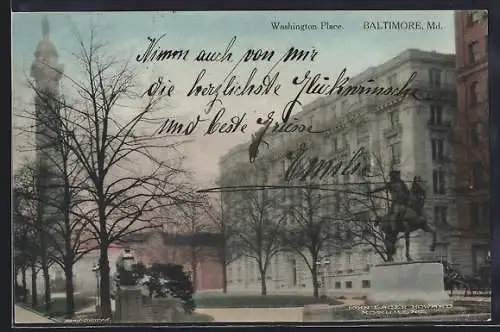 Washington Place. BALTIMORE, Md.
Nimm auch von mir
die herzlichste Glückwünsche
und beste Grüsse
Emilie
JOHN EAGER HOWARD
MONUMENT.